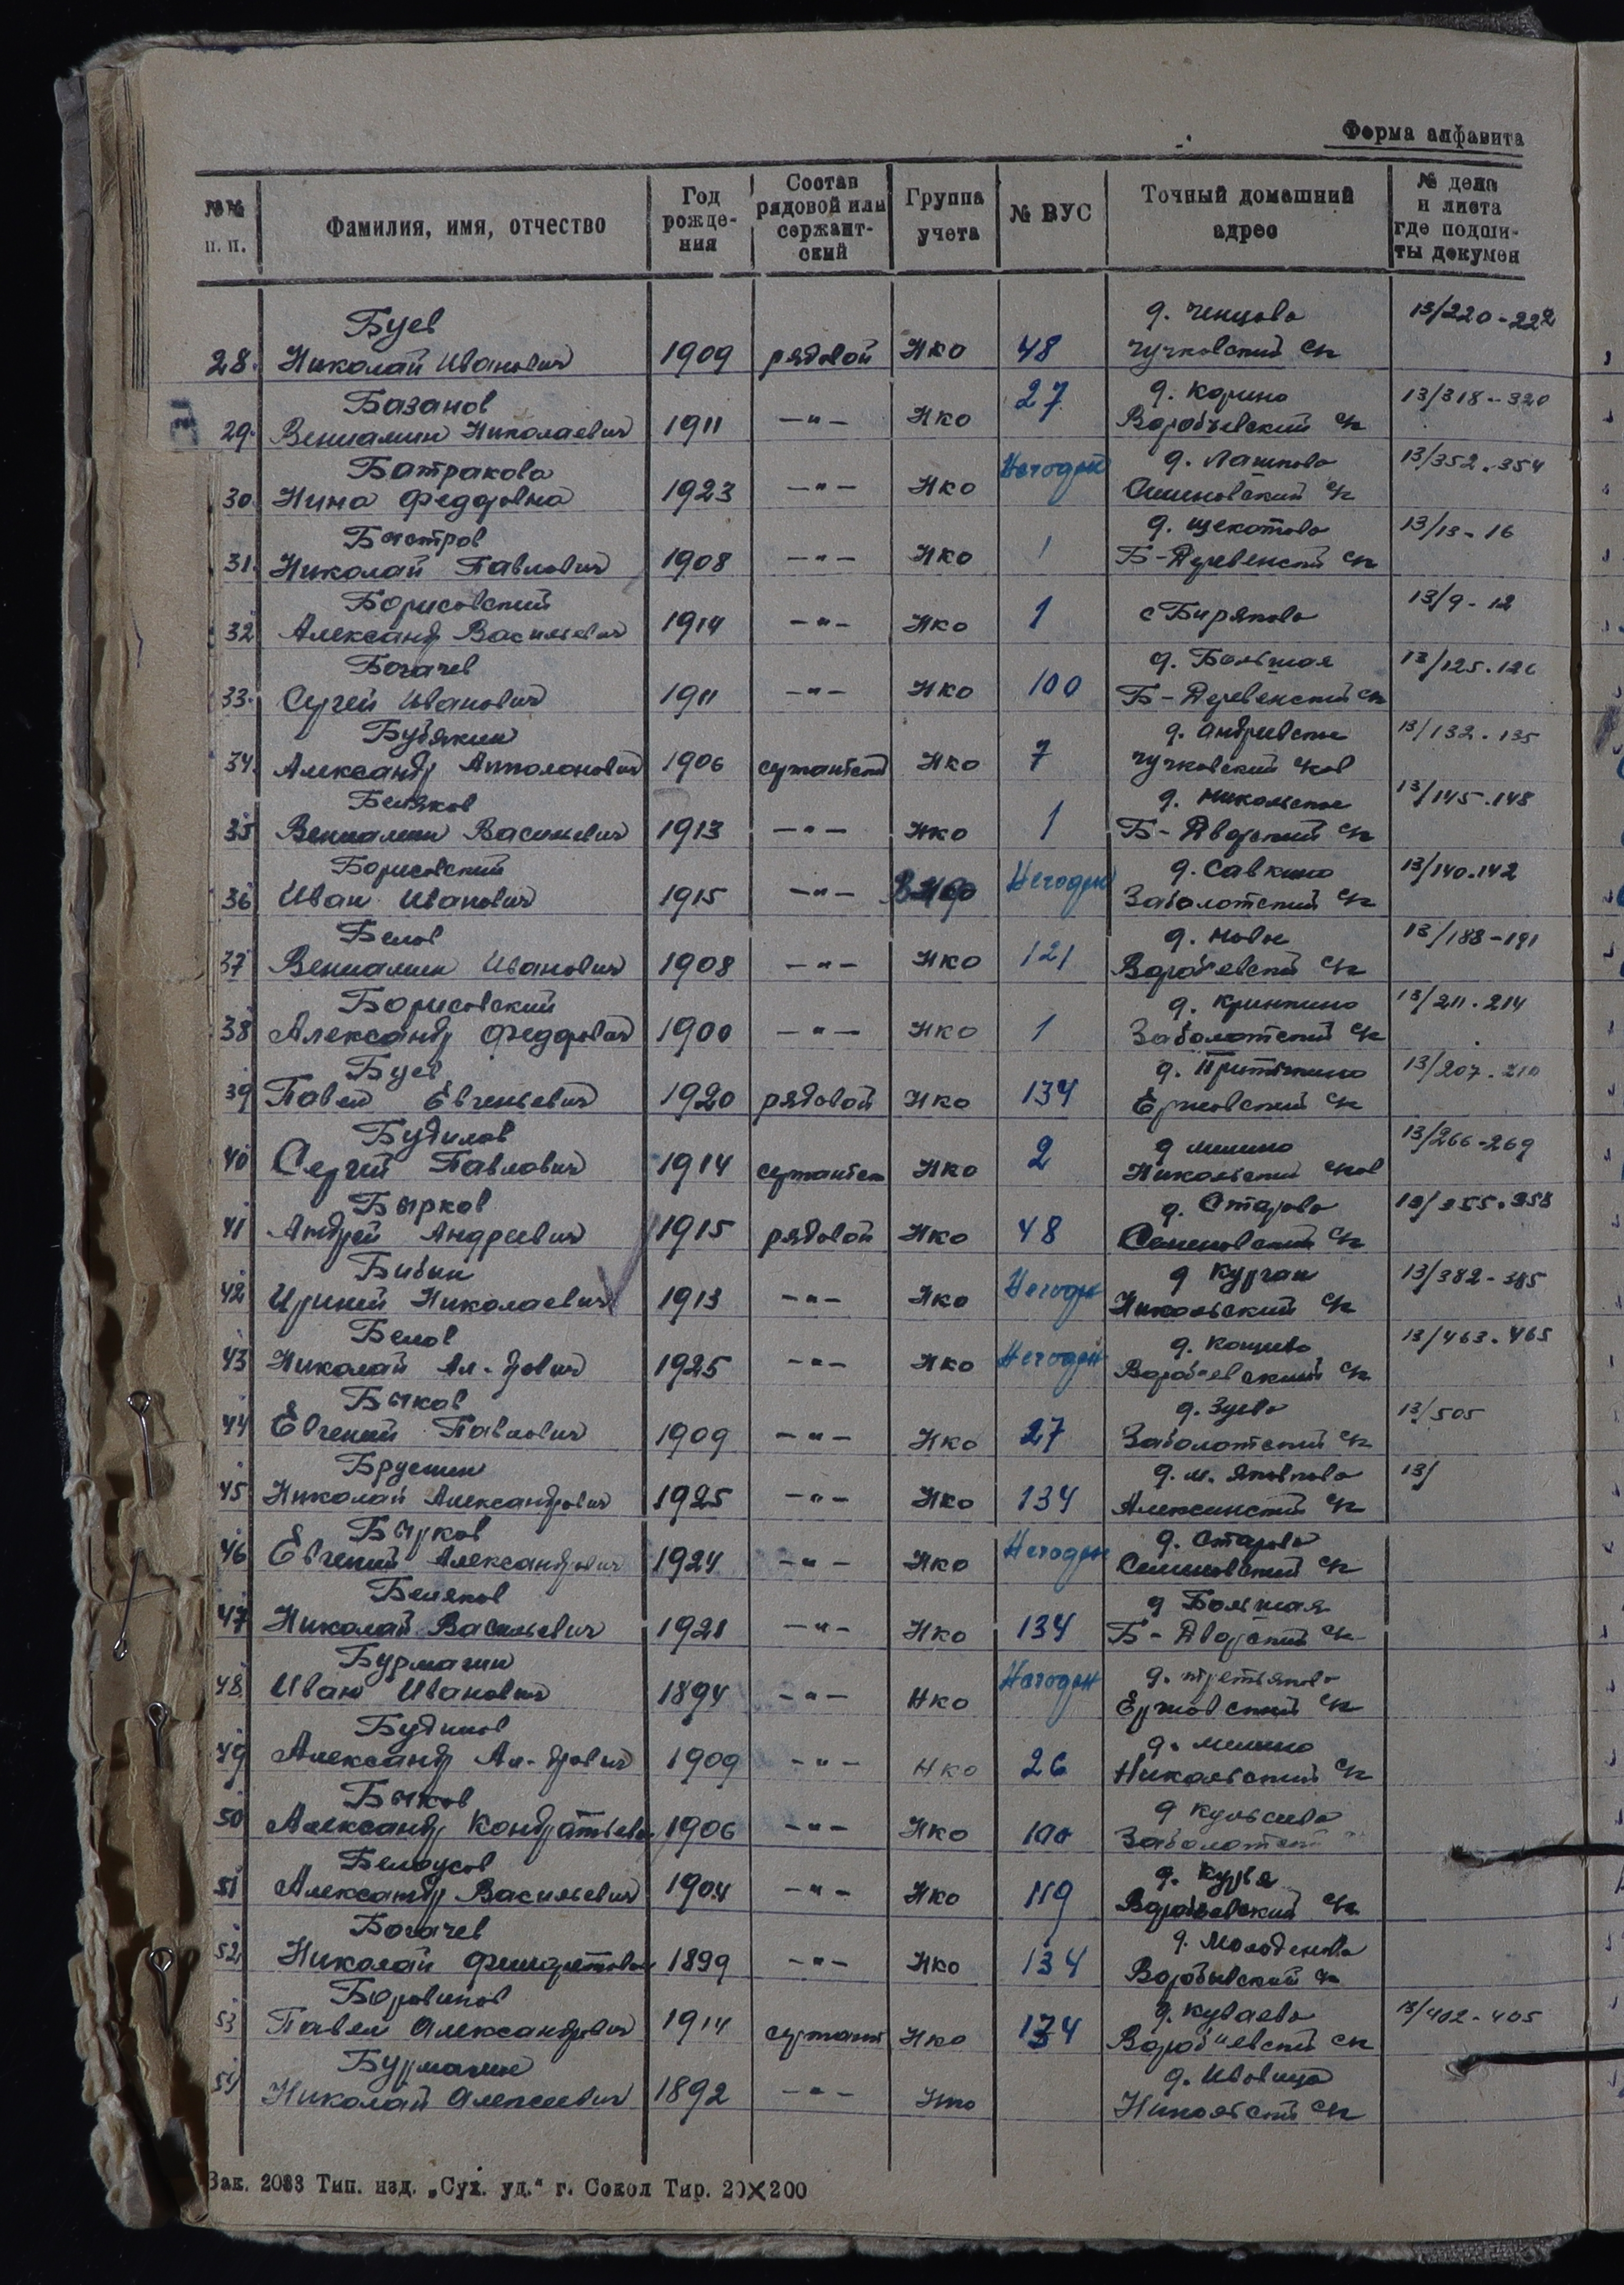 Форма алфавита
№№ п. п. | Фамилия, имя, отчество | Год рожде-ния | Состав рядовой или сержант-ский | Группа учета | № ВУС | Точный домашний адрес | № дела и листа где подши-ты докумен
Буев д. Ченцово 13/220-222
28. Николай Иванович 1909 рядовой НКО 48 Чучковский с/с
Базанов 27 д. Корино 13/318-320
29. Вениамин Николаевич 1911 —"— НКО Воробьевский с/с
Батракова Негоден 13/352-354
30. Нина Федоровна 1923 —"— НКО Семеновский с/с
Быстров д. Щекотово 13/13-16
31. Николай Павлович 1908 —"— НКО 1 Б-Деревенский с/с
Борисовский 13/9-12
32 Александр Васильевич 1914 —"— НКО 1 с Биряково
Богачев д. Большая 13/125-126
33. Сергей Иванович 1911 —"— НКО 100 Б-Деревенский с/с
Бубякин д. Андреевское 13/132-135
34. Александр Апполонович 1906 сержантский НКО 7 Чучковский
Беляков д. Никольское 13/145-148
35 Вениамин Васильевич 1913 —"— НКО 1 Б-Дворский с/с
Борисовский Негоден д. Савкино 13/140-142
36 Иван Иванович 1915 —"— Заболотский с/с
Белов д. Новое 13/188-191
37 Вениамин Иванович 1908 —"— НКО 121 Воробьевский с/с
Борисовский 13/211-214
38 Александр Федорович 1900 —"— НКО 1 Заболотский с/с
Буев 13/207-210
39 Павел Евгеньевич 1920 рядовой НКО 134 Ержовский с/с
Будилов 13/266-269
40 Сергей Павлович 1914 сержантск НКО 2 Никольский
Бырков д. Старово
41 Андрей Андреевич 1915 рядовой НКО 48 Семеновский с/с
Негоден д Курган 13/382-385
42 Николаевич 1913 —"— НКО Никольский с/с
Белов Негоден 13/463-465
43 Николай Ал-дрович 1925 —"— НКО Воробьевский с/с
Быков д. Зуево 13/505
44 Евгений Павлович 1909 —"— НКО 27 Заболотский с/с
д. М. Яковково 13/
45 Николай Александрович 1925 —"— НКО 134 Алексинский с/с
Бырков Негоден д. Старово
46 Евгений Александрович 1924 —"— НКО Семеновский с/с
Беляков д Большая
47 Николай Васильевич 1921 —"— НКО 134 Б-Дворский с/с
Бурмагин Негоден д. Третьяково
48 Иван Иванович 1894 —"— НКО Ержовский с/с
Будилов
49 Александр Ал-дрович 1909 —"— НКО 26 Никольский с/с
Быков
50 Александр Кондратьевич 1906 —"— НКО 100 Заболотский
Белоусов д. Курья
51 Александр Васильевич 1904 —"— НКО 119 Воробьевский с/с
Богачев
52 Николай Филаретович 1899 —"— НКО 134 Воробьевский с/с
Боровиков д. Куваево 13/402-405
53 Павел Александрович 1914 сержант НКО 134 Воробьевский с/с
Бурмагин д. Ивовица
54 Николай Алексеевич 1892 —"— НКО Никольский с/с
Зак. 2083 Тип. изд. „Сух. уд.“ г. Сокол Тир. 20×200